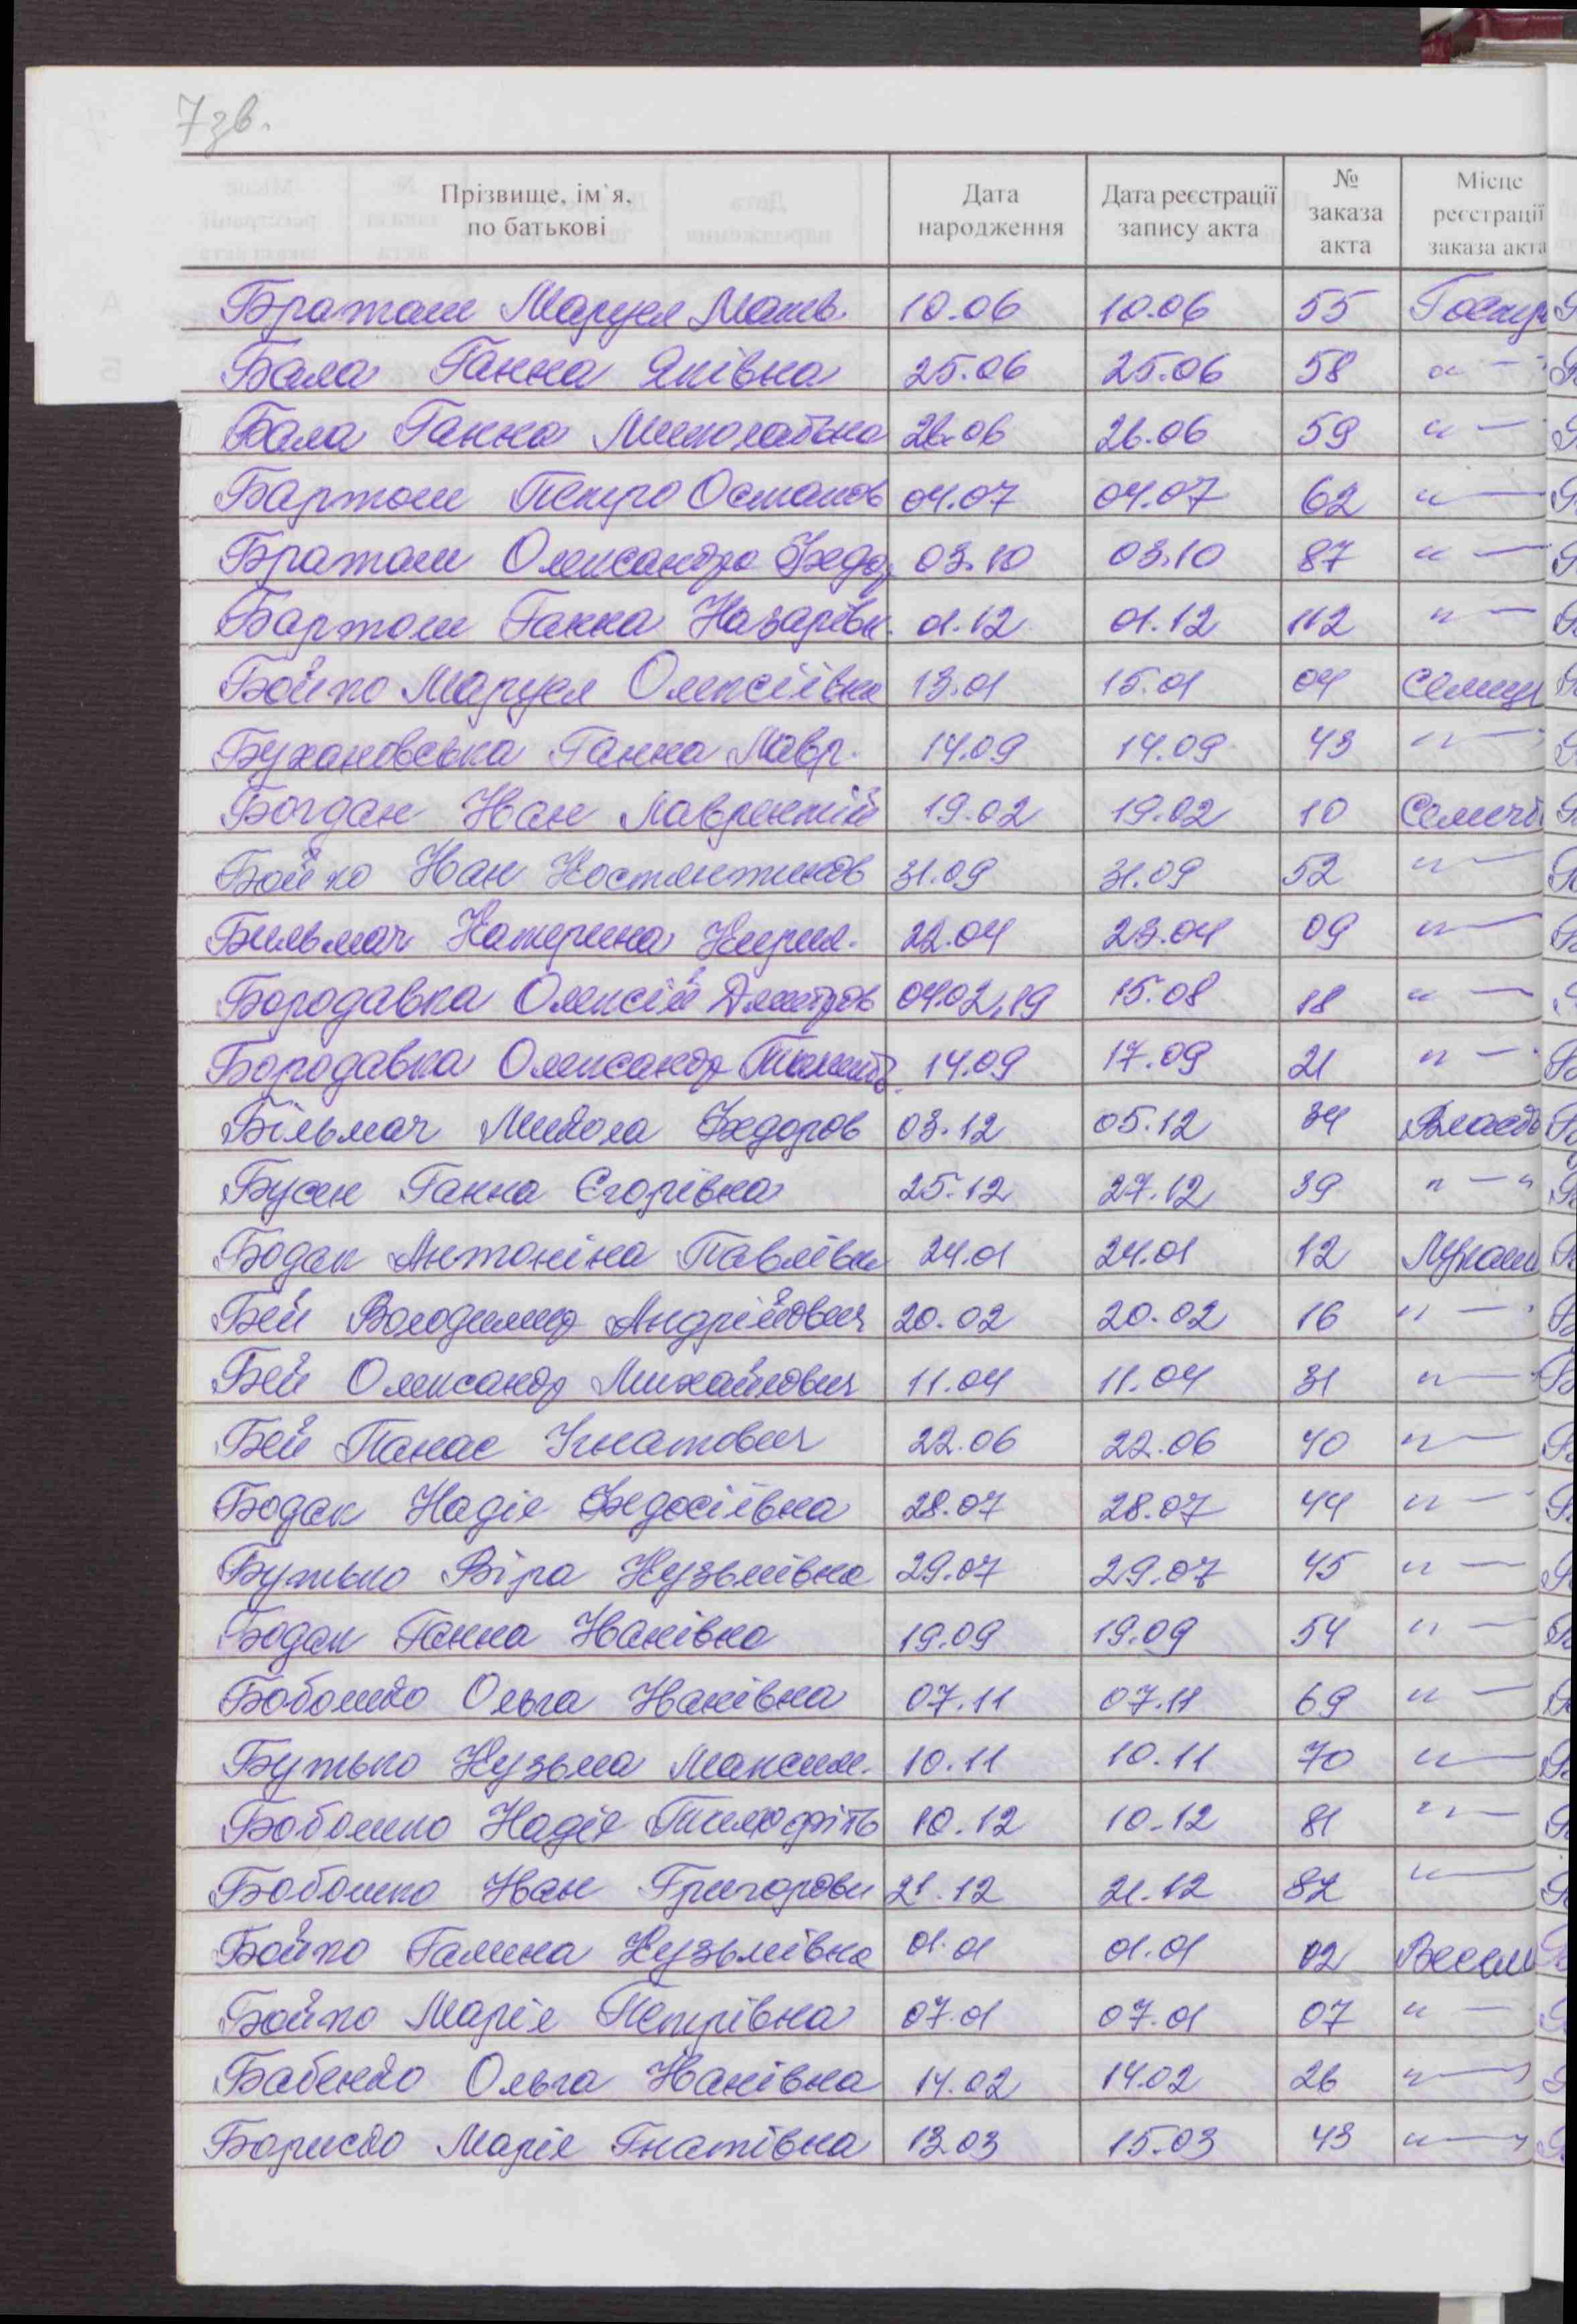 7 зв.
Прізвище, ім`я, по батькові | Дата народження | Дата реєстрації запису акта | № заказа акта | Місце реєстрації заказа акта
Браташ Маруся Матв. 10.06 10.06 55
Бала Ганна Яківна 25.06 25.06 58 " —
Бала Ганна Миколаївна 26.06 26.06 59 " —
Барташ Петро Остапов 04.07 04.07 62 " —
Браташ Олександра Федор 03.10 03.10 87 " —
Барташ Ганна Назарівн. 01.12 01.12 112 " —
Бойко Маруся Олексіївна 13.01 15.01 04
Бухановська Ганна Лавр. 14.09 14.09 43 " —
Богдан Іван Лаврентій 19.02 19.02 10
Бойко Іван Костянтинов 31.09 31.09 52 " —
Бильмач Катерина Кирил. 22.04 23.04 09 " —
Бородавка Олексій Дмитров 04.02.19 15.08 18 " —
Бородавка Олександр 14.09 17.09 21 " —
Більмач Микола Федоров 03.12 05.12 34
Бусен Ганна Єгорівна 25.12 27.12 39 " — "
Бодак Антоніна Павлівн 24.01 24.01 12 Лукаш
Бей Володимир Андрійович 20.02 20.02 16 " —
Бей Олександр Михайлович 11.04 11.04 31 " —
Бей Панас Ігнатович 22.06 22.06 40 " —
Бодак Надія Федосіївна 28.07 28.07 44 " —
Бутько Віра Кузьмівна 29.07 29.07 45 " —
Бодак Ганна Іванівна 19.09 19.09 54 " —
Бобошко Ольга Іванівна 07.11 07.11 69 " —
Бутько Кузьма Максим. 10.11 10.11 70 " —
Бобошко Надія 10.12 10.12 81 " —
Бобошко Іван Григорови 21.12 21.12 82 " —
Бойко Галина Кузьмівна 01.01 01.01 02 Весел
Бойко Марія Петрівна 07.01 07.01 07 " —
Бабенко Ольга Іванівна 14.02 14.02 26 " —
Бориско Марія Гнатівна 13.03 15.03 43 " — "